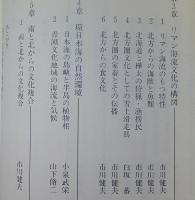 3章 リマン海流文化の構図
1 リマン海流のもつ特性 市川健夫
2 北方からの海豚と魚類
3 北海道と樺太の狩猟・漁撈民
4 北方文化としての雪上滑走具 白坂 蕃
5 北方圏の家畜とその伝播 市川健夫
6 北方からの食文化
4章 環日本海の自然環境
1 日本海の島嶼と半島の植物相 小泉武栄
2 青潮文化地域の海流と気候 山下脩二
5章 南と北からの文化複合
1 南と北からの文化複合 市川健夫
市川健夫